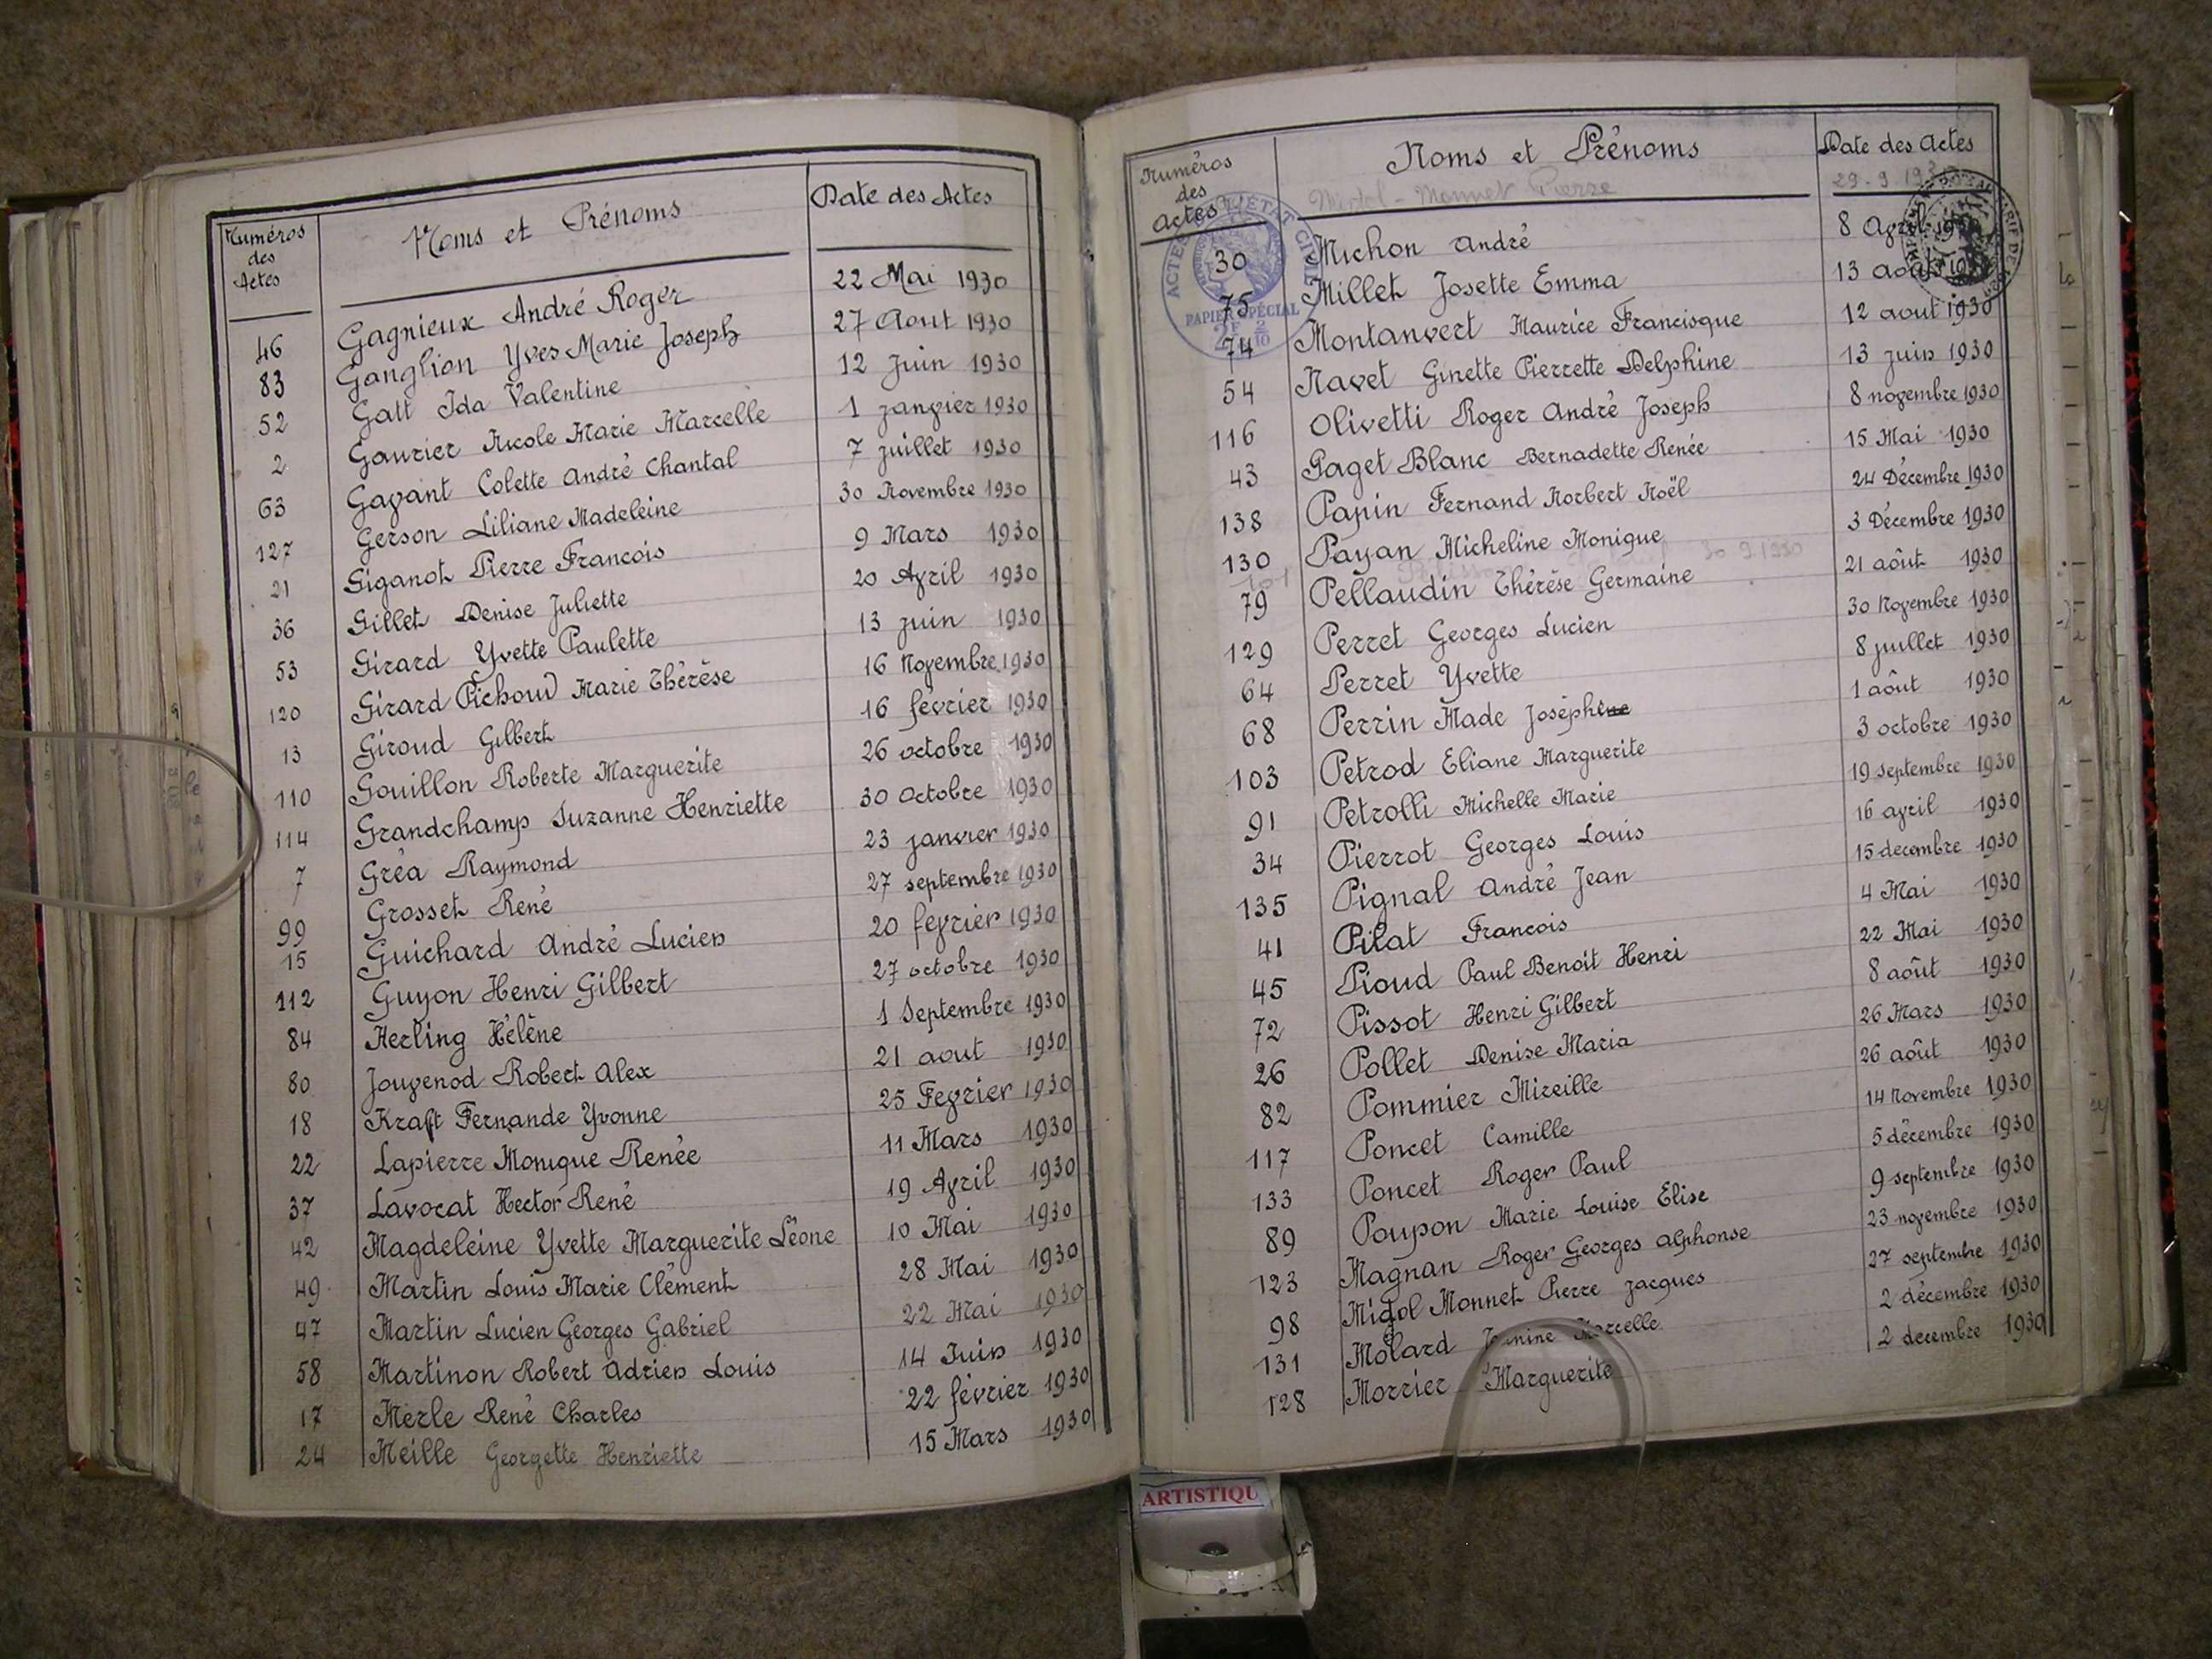 Numéros des Actes Noms et Prénoms Date des Actes
46 Gagnieux André Roger 22 Mai 1930
83 Ganglion Yves Marie Joseph 27 Aout 1930
52 Gatt Ida Valentine 12 Juin 1930
2 Gaurier Nicole Marie Marcelle 1 janvier 1930
63 Gavant Colette André Chantal 7 juillet 1930
127 Gerson Liliane Madeleine 30 Novembre 1930
21 Giganot Pierre Francois 9 Mars 1930
36 Gillet Denise Juliette 20 Avril 1930
53 Girard Yvette Paulette 13 juin 1930
120 Girard Pichoud Marie Thérèse 16 Novembre 1930
13 Giroud Gilbert 16 février 1930
110 Gouillon Roberte Marguerite 26 octobre 1930
114 Grandchamp Suzanne Henriette 30 Octobre 1930
7 Gréa Raymond 23 janvier 1930
99 Grosset René 27 septembre 1930
15 Guichard André Lucien 20 fevrier 1930
112 Guyon Henri Gilbert 27 octobre 1930
84 Herling Hélène 1 Septembre 1930
80 Jouvenod Robert Alex 21 aout 1930
18 Kraft Fernande Yvonne 25 Fevrier 1930
22 Lapierre Monique Renée 11 Mars 1930
37 Lavocat Hector René 19 Avril 1930
42 Magdeleine Yvette Marguerite Léone 10 Mai 1930
49 Martin Louis Marie Clément 28 Mai 1930
47 Martin Lucien Georges Gabriel 22 Mai 1930
58 Martinon Robert Adrien Louis 14 Juin 1930
17 Merle René Charles 22 février 1930
24 Meille Georgette Henriette 15 Mars 1930
Numéros des Actes Noms et Prénoms Date des Actes
Monnet Pierre 29-9
30 Michon André 8 Avril
75 Millet Josette Emma 13 août
74 Montanvert Maurice Francisque 12 aout 1930
54 Navet Ginette Pierrette Delphine 13 juin 1930
116 Olivetti Roger André Joseph 8 novembre 1930
43 Paget Blanc Bernadette Renée 15 Mai 1930
138 Papin Fernand Norbert Noël 24 Décembre 1930
130 Payan Micheline Monique 3 Décembre 1930
101 30 9 1930
79 Pellaudin Thérèse Germaine 21 août 1930
129 Perret Georges Lucien 30 Novembre 1930
64 Perret Yvette 8 juillet 1930
68 Perrin Made Joséphine 1 août 1930
103 Petrod Eliane Marguerite 3 octobre 1930
91 Petrolli Michelle Marie 19 Septembre 1930
34 Pierrot Georges Louis 16 avril 1930
135 Pignal André Jean 15 decembre 1930
41 Pilat Francois 4 Mai 1930
45 Pioud Paul Benoit Henri 22 Mai 1930
72 Pissot Henri Gilbert 8 août 1930
26 Pollet Denise Maria 26 Mars 1930
82 Pommier Mireille 26 août 1930
117 Poncet Camille 14 Novembre 1930
133 Poncet Roger Paul 5 décembre 1930
89 Poupon Marie Louise Elise 9 septembre 1930
123 Magnan Roger Georges Alphonse 23 novembre 1930
98 Midol Monnet Pierre Jacques 27 septembre 1930
131 Molard Jeanine Marcelle 2 décembre 1930
128 Morrier Marguerite 2 decembre 1930
ACTES DE L'ÉTAT CIVIL
PAPIER SPÉCIAL
2F 2/10
ARTISTIQU